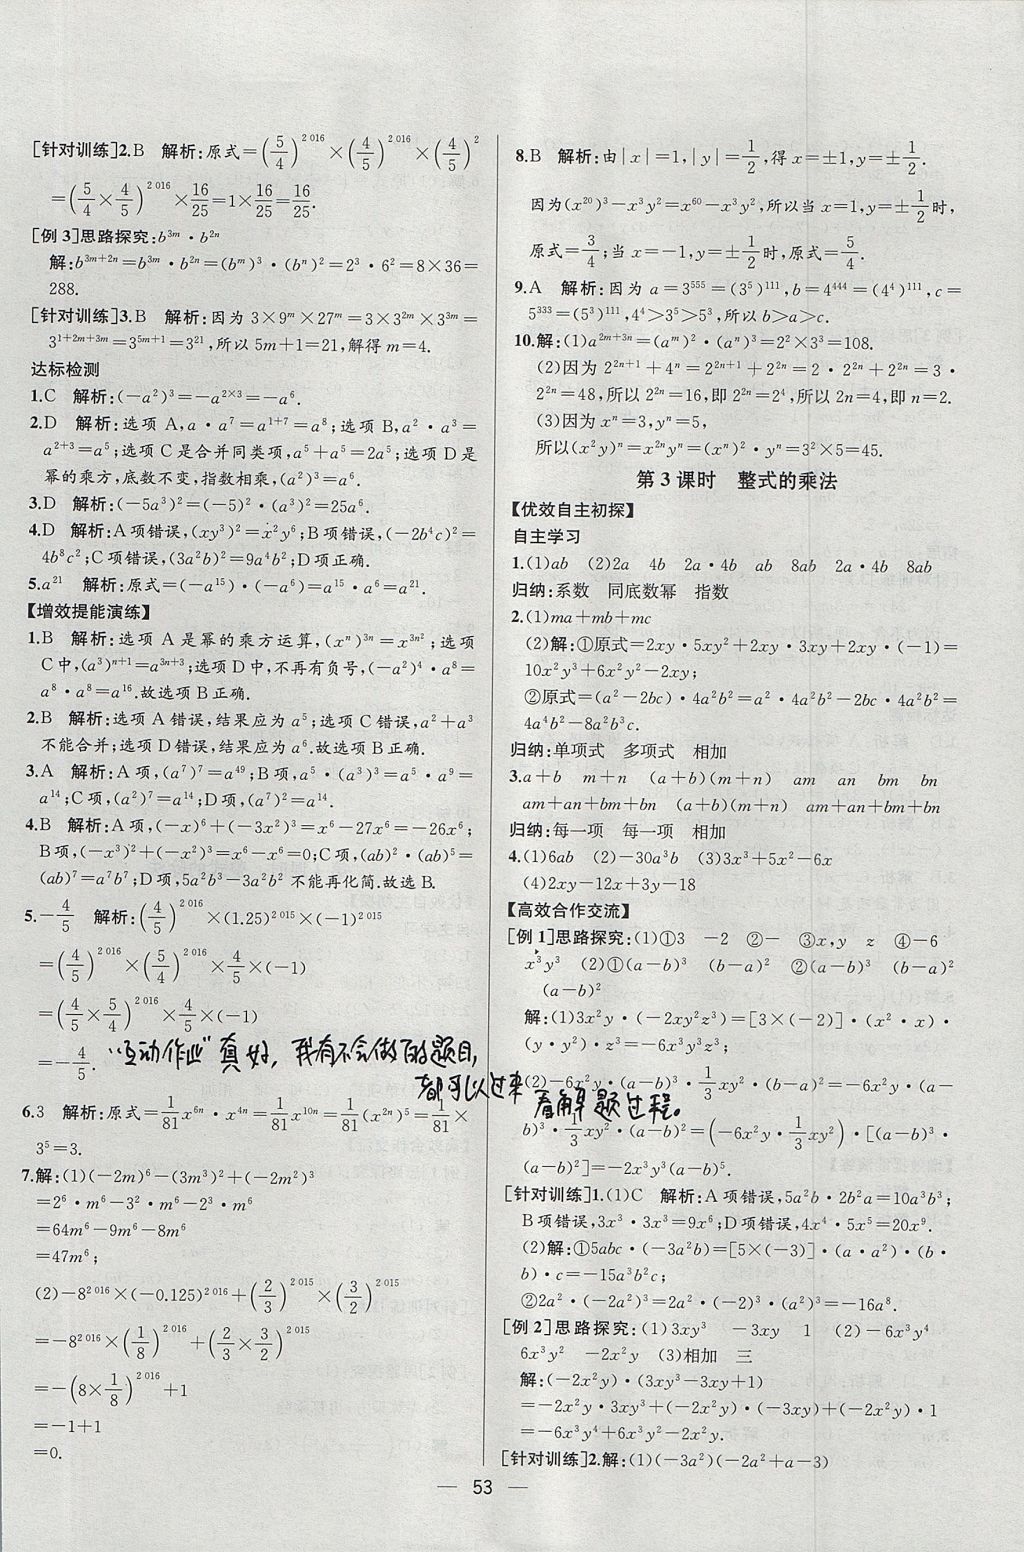 [针对训练]2.B 解析:原式=(5/4)^2016×(4/5)^2016×(4/5)^2
=(5/4×4/5)^2016×16/25=1×16/25=16/25.
[例3]思路探究:b^3m·b^2n
解:b^(3m+2n)=b^3m·b^2n=(b^m)^3·(b^n)^2=2^3·6^2=8×36=
288.
[针对训练]3.B 解析:因为3×9^m×27^m=3×3^2m×3^3m=
3^(1+2m+3m)=3^(5m+1)=3^21,所以5m+1=21,解得m=4.
达标检测
1.C 解析:(-a^2)^3=-a^(2×3)=-a^6.
2.D 解析:选项A,a·a^7=a^(1+7)=a^8;选项B,a^2·a^3=
a^(2+3)=a^5;选项C是合并同类项,a^5+a^5=2a^5;选项D是
幂的乘方,底数不变,指数相乘,(a^2)^3=a^6.
3.D 解析:(-5a^3)^2=(-5)^2·(a^3)^2=25a^6.
4.D 解析:A项错误,(xy^3)^2=x^2y^6;B项错误,(-2b^4c)^2=
4b^8c^2;C项错误,(3a^2b)^2=9a^4b^2;D项正确.
5.a^21 解析:原式=(-a^15)·(-a^6)=a^15·a^6=a^21.
【增效提能演练】
1.B 解析:选项A是幂的乘方运算,(x^n)^3n=x^3n²;选项
C中,(a^3)^(n+1)=a^(3n+3);选项D中,不再有负号,(-a^2)^4·a^8=
a^8·a^8=a^16.故选项B正确.
2.B 解析:选项A错误,结果应为a^5;选项C错误,a^2+a^3
不能合并;选项D错误,结果应为a^6.故选项B正确.
3.A 解析:A项,(a^7)^7=a^49;B项,a^5·(a^3)^3=a^5·a^9=
a^14;C项,(a^2)^7=a^14;D项,(a^7)^2=a^14.
4.B 解析:A项,(-x)^6+(-3x^2)^3=x^6-27x^6=-26x^6;
B项,(-x^3)^2+(-x^2)^3=x^6-x^6=0;C项,(ab)^2·(ab)^5=
(ab)^7=a^7b^7;D项,5a^2b^3-3a^3b^2不能再化简.故选B.
5.-4/5 解析:(4/5)^2016×(1.25)^2015×(-1)^2015
=(4/5)^2016×(5/4)^2015×(-1)
=(4/5×5/4)^2016×4/5×(-1)
=-4/5.
“互动作业”真好,我有不会做的题目,
都可以过来
看解题过程。
6.3 解析:原式=1/81 x^6n·x^4n=1/81 x^10n=1/81(x^2n)^5=1/81×
3^5=3.
7.解:(1)(-2m)^6-(3m^3)^2+(-2m^2)^3
=2^6·m^6-3^2·m^6-2^3·m^6
=64m^6-9m^6-8m^6
=47m^6;
(2)-8^2016×(-0.125)^2016+(2/3)^2015×(3/2)^2015
=-8^2016×(1/8)^2016+(2/3×3/2)^2015
=-(8×1/8)^2016+1
=-1+1
=0.
8.B 解析:由|x|=1,|y|=1/2,得x=±1,y=±1/2.
因为(x^20)^3-x^3y^2=x^60-x^3y^2,所以当x=1,y=±1/2时,
原式=3/4;当x=-1,y=±1/2时,原式=5/4.
9.A 解析:因为a=3^555=(3^5)^111,b=4^444=(4^4)^111,c=
5^333=(5^3)^111,4^4>3^5>5^3,所以b>a>c.
10.解:(1)a^(2m+3n)=(a^m)^2·(a^n)^3=2^2×3^3=108.
(2)因为2^(2n+1)+4^n=2^(2n+1)+2^2n=2·2^2n+2^2n=3·
2^2n=48,所以2^2n=16,即2^2n=2^4,所以2n=4,即n=2.
(3)因为x^n=3,y^n=5,
所以(x^2y)^n=x^2ny^n=(x^n)^2·y^n=3^2×5=45.
第3课时 整式的乘法
【优效自主初探】
自主学习
1.(1)ab (2)2a 4b 2a·4b ab 8ab 2a·4b 8ab
归纳:系数 同底数幂 指数
2.(1)ma+mb+mc
(2)解:①原式=2xy·5xy^2+2xy·3xy+2xy·(-1)=
10x^2y^3+6x^2y^2-2xy;
②原式=(a^2-2bc)·4a^2b^2=a^2·4a^2b^2-2bc·4a^2b^2=
4a^4b^2-8a^2b^3c.
归纳:单项式 多项式 相加
3.a+b m+n (a+b)(m+n) am an bm bn
am+an+bm+bn (a+b)(m+n) am+an+bm+bn
归纳:每一项 每一项 相加
4.(1)6ab (2)-30a^3b (3)3x^3+5x^2-6x
(4)2xy-12x+3y-18
【高效合作交流】
[例1]思路探究:(1)①3 -2 ②- ③x,y z ④-6
x^3y^3 (2)①(a-b)^3 (b-a)^2 ②(a-b)^3
(a-b)^2
解:(1)3x^2y·(-2xy^2z^3)=[3×(-2)]·(x^2·x)·
(y·y^2)·z^3=-6x^3y^3z^3;
(2)-6x^2y·(a-b)^3·1/3xy^2·(b-a)^2=-6x^2y·(a-
b)^3·1/3xy^2·(a-b)^2=(-6x^2y·1/3xy^2)·[(a-b)^3·
(a-b)^2]=-2x^3y^3(a-b)^5.
[针对训练]1.(1)C 解析:A项错误,5a^2b·2b^2a=10a^3b^3;
B项错误,3x^3·3x^3=9x^6;D项错误,4x^4·5x^5=20x^9.
(2)解:①5abc·(-3a^2b)=[5×(-3)]·(a·a^2)·(b·
b)·c=-15a^3b^2c;
②2a^2·(-2a^2)^3=2a^2·(-2)^3·(a^2)^3=-16a^8.
[例2]思路探究:(1)3xy^3 -3xy 1 (2)-6x^3y^4
6x^3y^2 -2x^2y (3)相加 三
解:(-2x^2y)·(3xy^3-3xy+1)
=-2x^2y·3xy^3+(-2x^2y)·(-3xy)+(-2x^2y)·1
=-6x^3y^4+6x^3y^2-2x^2y.
[针对训练]2.解:(1)(-3a^2)(-2a^2+a-3)
— 53 —